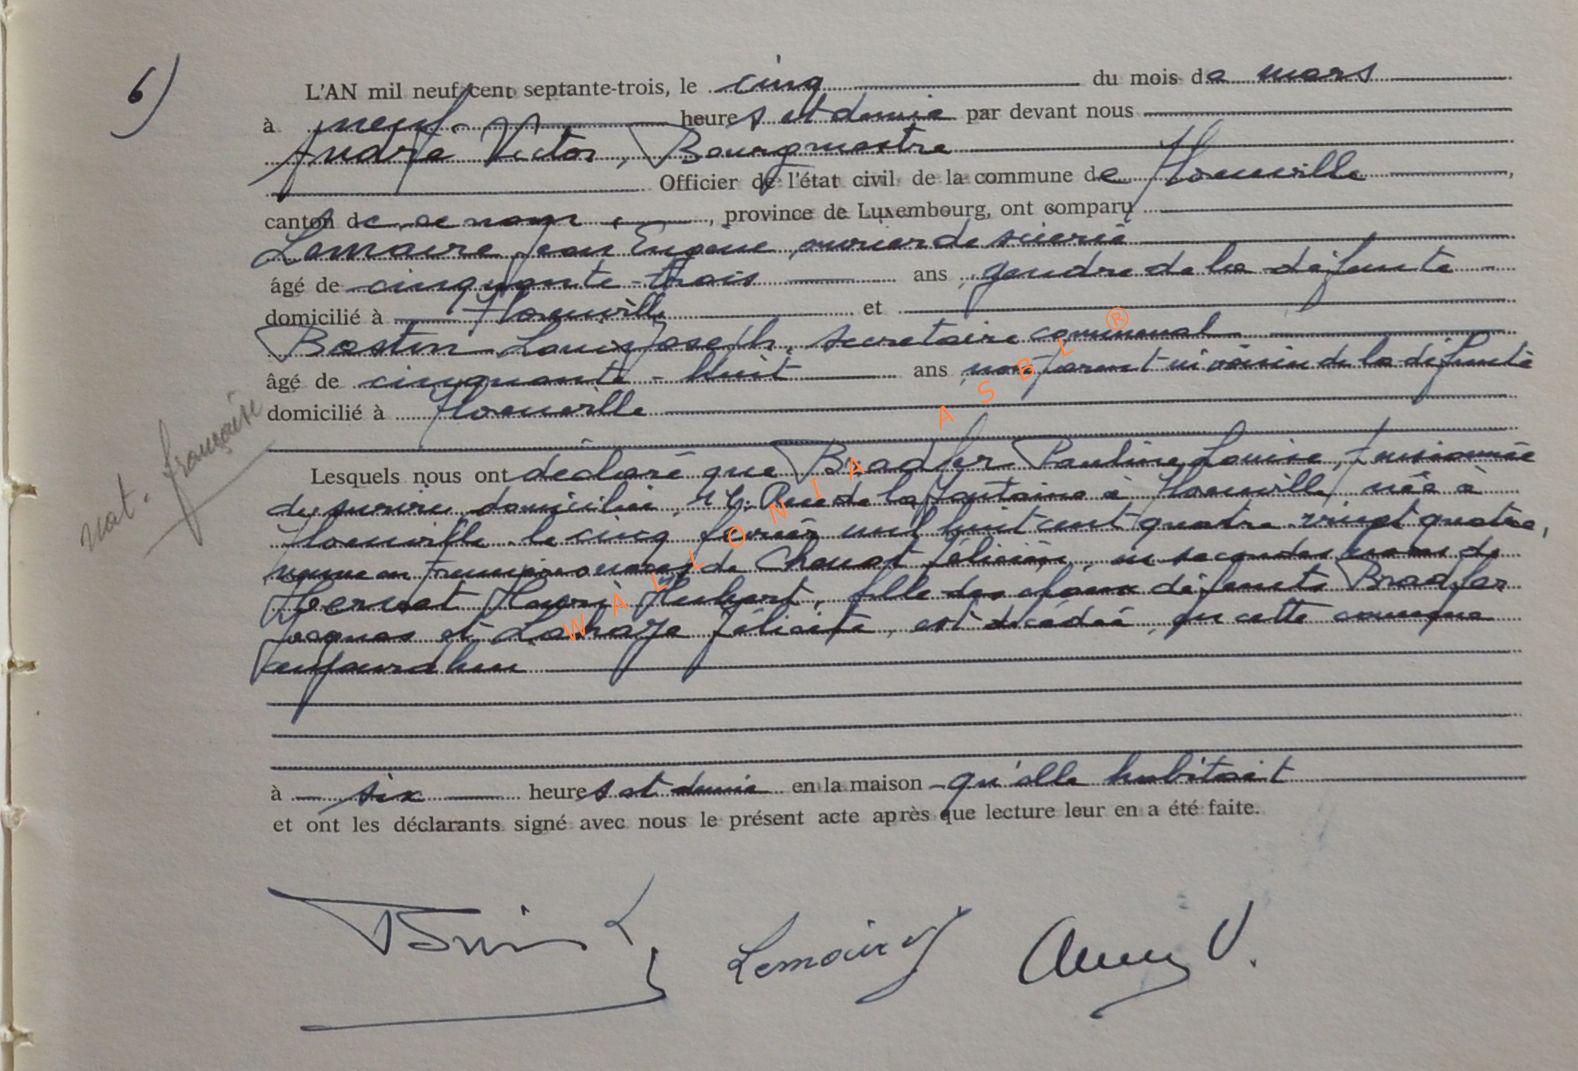 6)
L'AN mil neuf cent septante-trois, le cinq du mois de mars
à neuf heures et demie par devant nous
André Victor, Bourgmestre
Officier de l'état civil de la commune de Flamierge
canton de ce nom, province de Luxembourg, ont comparu
Lemaire Jean Eugène, ouvrier de scierie
âgé de cinquante-trois ans, gendre de la défunte
domicilié à et
Bastin Louis Joseph, secrétaire communal
âgé de cinquante-huit ans non parent ni voisin de la défunte
domicilié à
nat. française
Lesquels nous ont déclaré que Bradfer Pauline Louise, pensionnée
de survie, domiciliée, Rue de la Fontaine à née à
le cinq février mil huit cent quatre vingt quatre,
veuve en premières noces de Chenot Félicien, en secondes noces de
Henri Hubert, fille des époux défunts Bradfer
Jacques et Lahaye Félicité, est décédée, en cette commune
aujourd'hui
à six heures et demie en la maison qu'elle habitait
et ont les déclarants signé avec nous le présent acte après que lecture leur en a été faite.
Lemaire J
V.
WALLONIA ASBL ®